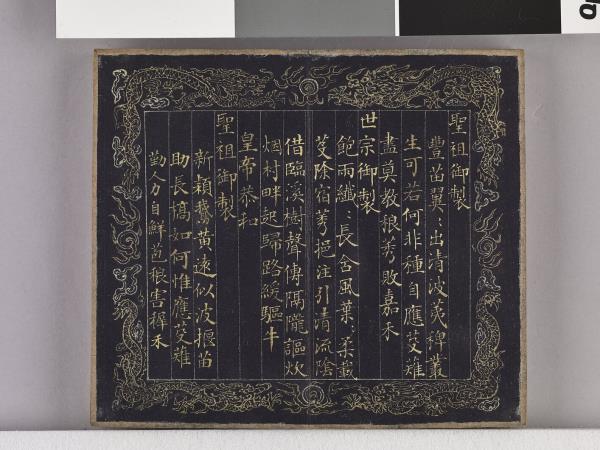 聖祖御製
豐苗翼〻出清波荑稗叢
生可若何非種自應芟薙
盡莫教稂莠敗嘉禾
世宗御製
飽雨纖〻長含風葉〻柔載
芟除宿莠挹注引清流陰
借臨溪樹聲傳隔隴謳炊
烟村畔起歸路緩驅牛
皇帝恭和
聖祖御製
新穎鵞黃遠似波揠苗
助長槁如何惟應芟薙
勤人力自鮮苞稂害穉禾